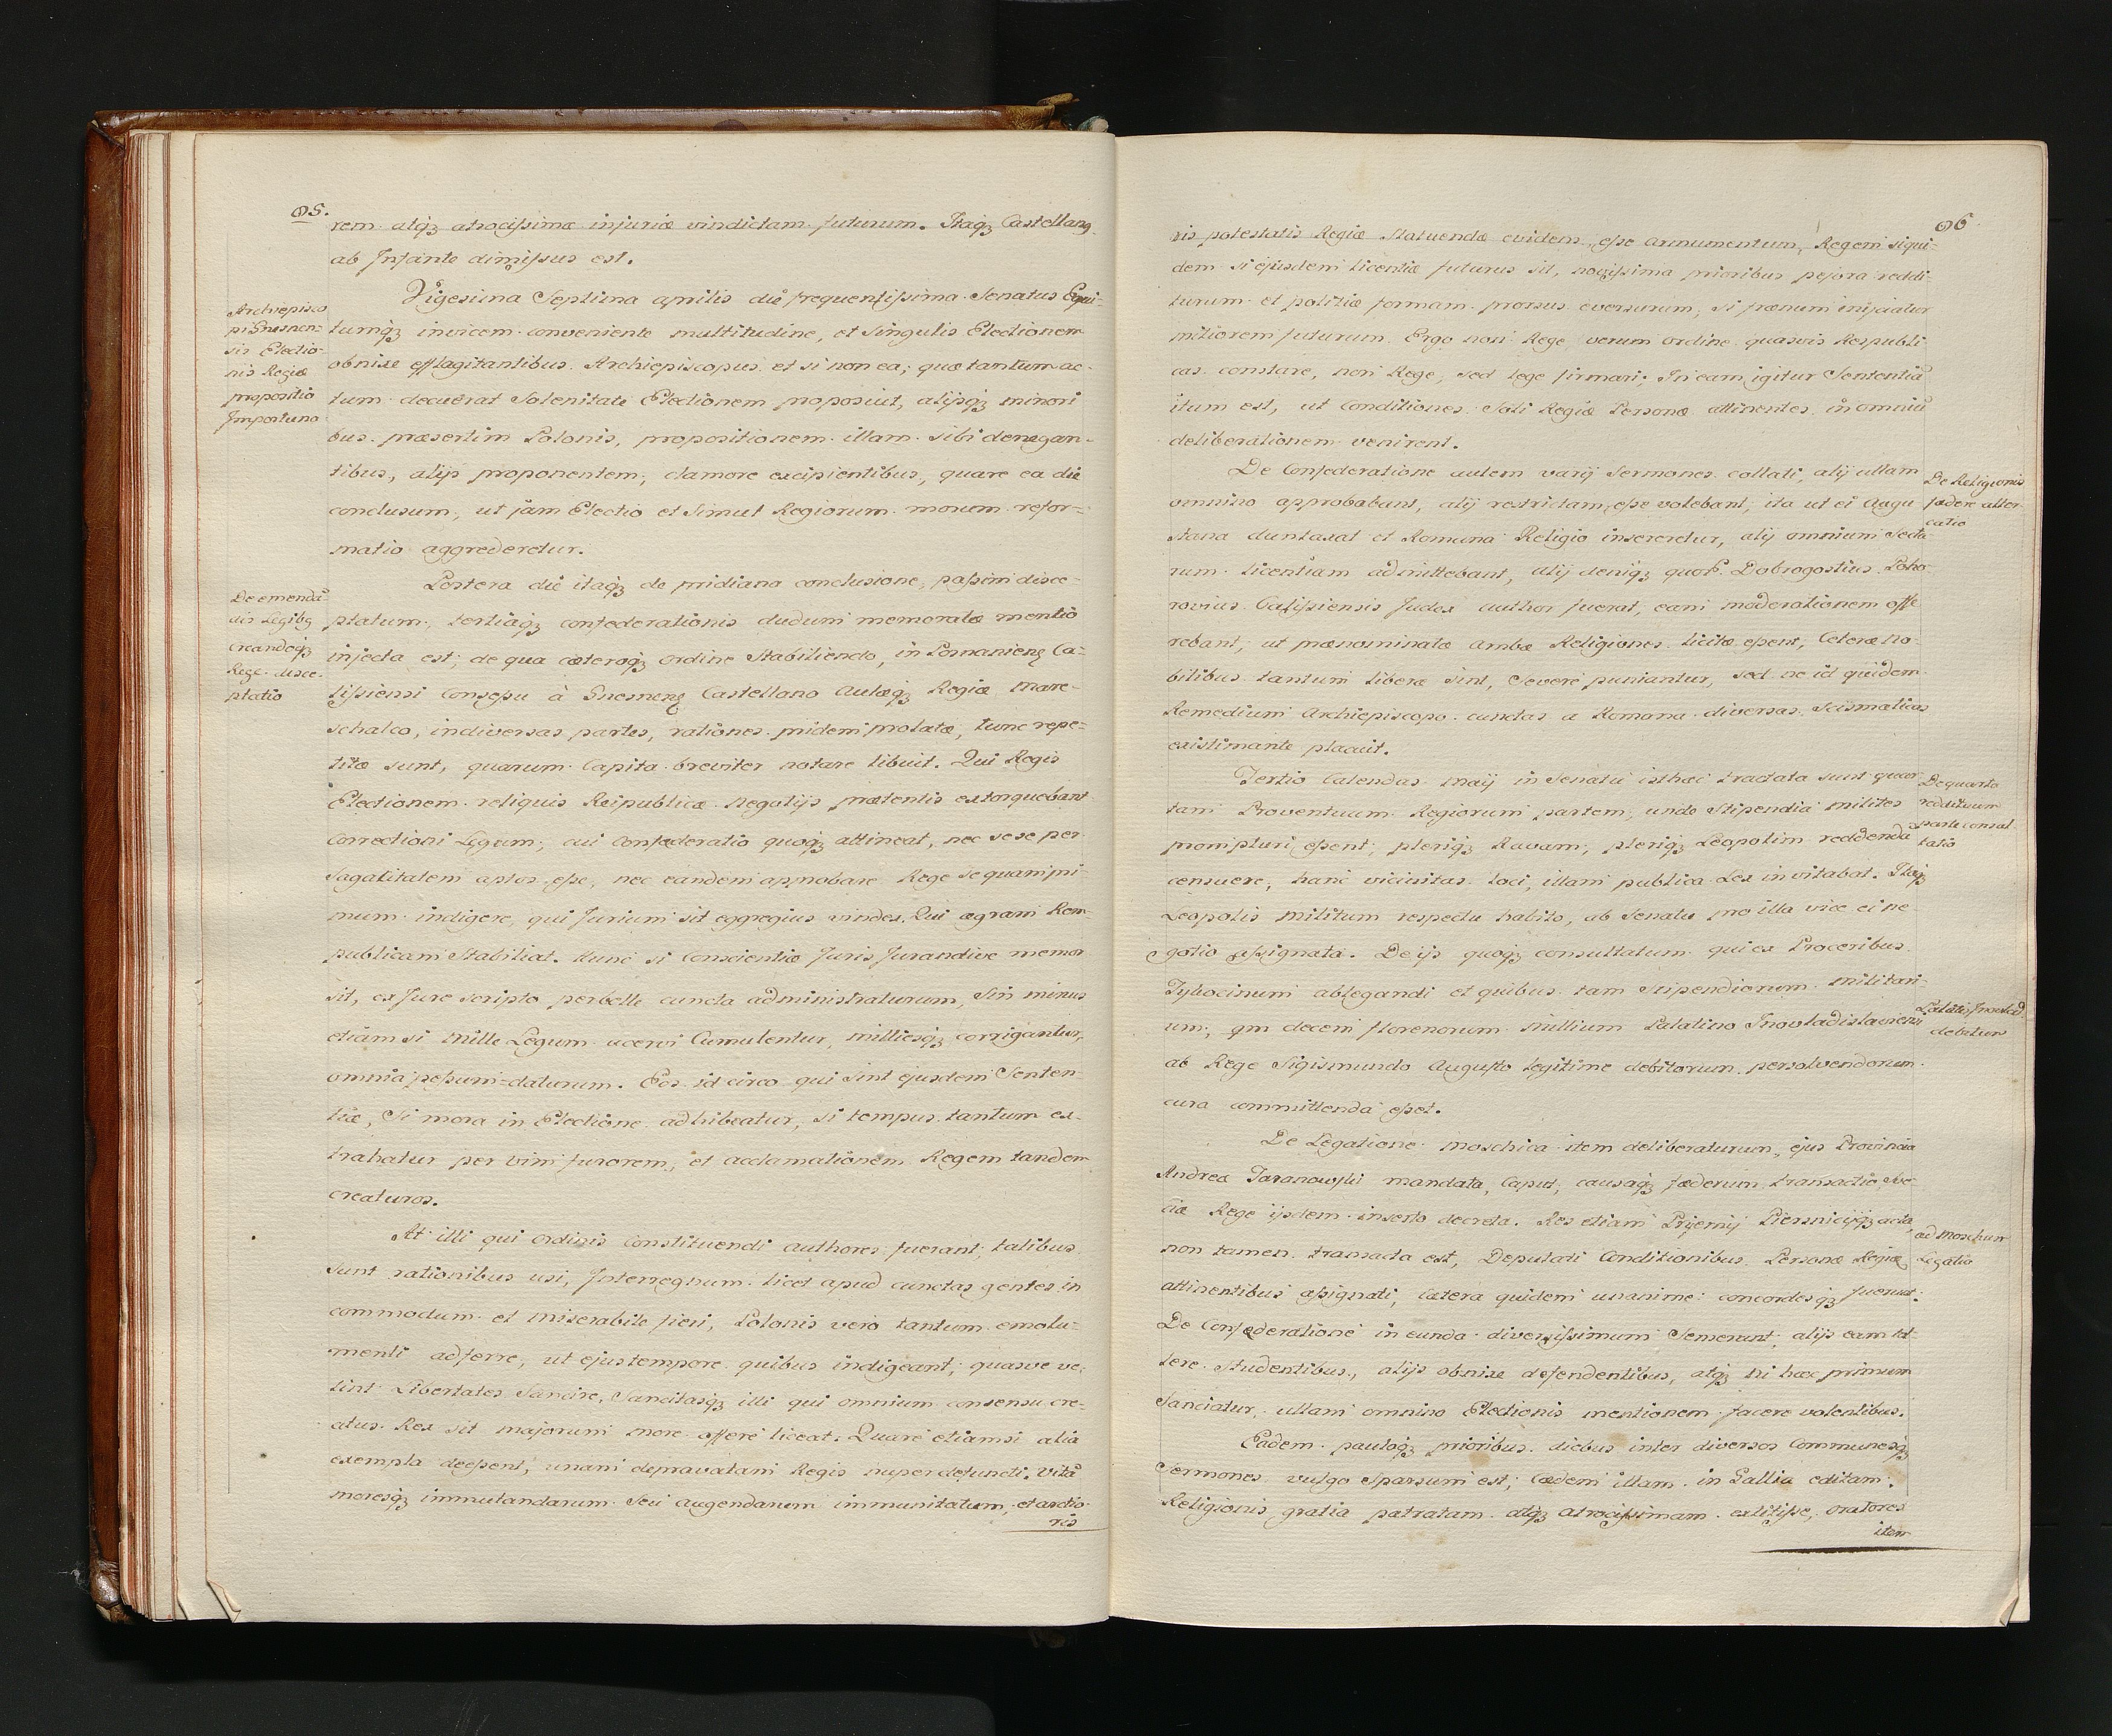 95.
rem atqꝫ atrocissimæ injuriæ vindictam futurum. Itaqꝫ Castellanꝯ
ab Infante dimissus est.
Vigesima Septima aprilis die frequentissima Senatus Equi-
tumqꝫ invicem conveniente multitudine, et Singulis Electionem
obnixe efflagitantibus. Archiepiscopus et si non ea; quæ tantum ac-
tum decuerat Solenitate Electionem proposuit, alijsqꝫ minori
bus præsertim Polonis, propositionem illam sibi denegan-
tibus, alijs proponentem, clamore excipientibus, quare ea die
conclusum, ut jam Electio et Simul Regiorum morum refor-
matio aggrederetur.
Archiepisco
pi Gnesnen-
sis Electio-
nis Regiæ
propositio
Importuna
Postera die itaqꝫ de pridiana conclusione, passim disce-
ptatum, tertiaqꝫ confederationis dudum memoratæ mentio
injecta est; de qua cæteroqꝫ ordine Stabiliendo, in Posnanienꝫ Ca-
lissiensi Consessu à Gnesnenꝫ Castellano Aulæqꝫ Regiæ Mare-
schalco, in diversas partes, rationes pridem prolatæ, tunc repe-
titæ sunt, quarum Capita breviter notare libuit. Qui Regis
Electionem reliquis Reipublicæ negotijs prætentis extorquebant
Correctioni Legum, cui Confæderatio quoqꝫ attineat, nec sese per
sagalitatem aptos esse, nec eandem approbare Rege se quam pri-
mum indigere, qui Jurium sit eggregius vindex. Qui ægram Rem-
publicam Stabiliat. Hunc si Conscientiæ Juris Jurandive memor
sit, ex Jure scripto perbelle cuncta administraturum, Sin minus
etiam si mille Legum acervi Cumulentur, milliesqꝫ corrigantur,
omnia pessum-daturum. Eos id circo qui sint ejusdem Senten-
tiæ, Si mora in Electione adhibeatur, si tempus tantum ex-
trahatur per vim furorem, et acclamationem Regem tandem
creaturos.
De emendā-
dis Legibꝯ
creandoqꝫ
Rege disce-
ptatio
At illi qui Ordinis Constituendi authores fuerant talibus
sunt rationibus usi, Interregnum licet apud cunctas gentes in
commodum et miserabile fieri, Polonis vero tantum emolu-
menti adferre, ut ejus tempore quibus indigeant, quasve ve-
lint Libertates Sancire, Sancitasqꝫ illi qui omnium consensu cre-
atus Rex sit majorum more offere liceat. Quare etiamsi alia
exempla deessent, unam depravatam Regis nuper defuncti. Vitā
moresqꝫ immutandarum Seu augendarum immunitatum, et arctio-
ris
96
ris potestatis Regiæ Statuendæ evidens esse armumentum, Regem siqui-
dem si ejusdem licentiæ futurus sit, novissima prioribus pejora reddi-
turum et politiæ formam prorsus eversurum, Si frænum injiciatur
mitiorem futurum. Ergo non Rege verum ordine quasvis Respubli
cas constare, non Rege, sed lege firmari; In eam igitur Sententiā
itum est, ut Conditiones Soli Regiæ Personæ attinentes in omniū
deliberationem venirent.
De Confederatione autem varij Sermones collati, alij ullam
omnino approbabant, alij restrictam esse volebant, ita ut ei Augu
stana duntaxat et Romana Religio insereretur, alij omnium Secta
rum licentiam admittebant, alij deniqꝫ quor̃ Dobrogostius Poto-
rovius Calissiensis Judex author fuerat, eam moderationem offe
rebant, ut prænominatæ ambæ Religiones licitæ essent, Ceteræ no-
bilibus tantum liberæ sint, Severe puniantur, sed ne id quidem
Remedium Archiepiscopo cunctas a Romana diversas Scismaticas
existimante placuit.
De Religionis
fædere alter
catio
Tertio Calendas Maij in Senatu isthæc tractata sunt quar
tam Proventuum Regiorum partem, unde Stipendia milites
prompturi essent; pleriqꝫ Ravam, pleriqꝫ Leopolim reddendā
censuere, hanc vicinitas loci, illam publica Lex invitabat. Itaqꝫ
Leopolis militum respectu habito, ab Senatu pro illa vice ei ne-
gotio assignata. De ijs quoqꝫ consultatum qui ex Proceribus
Tykocinum ablegandi et quibus tam Stipendiorum militari-
um, qm decem florenorum millium Palatino Inowladislaviensi
ab Rege Sigismundo Augusto legitime debitorum persolvendorum
cura committenda esset.
De quarta
reddituum
parte consul-
tatio
Palati: Inowlad:
debitum
De Legatione Moschica item deliberaturum, ejus Provincia
Andreæ Taranowski mandata, Caput, causaqꝫ fæderum transactio, Sve-
ciæ Rege ijsdem inserto decreta. Res etiam Prijemij Piersnicijqꝫ acta,
non tamen transacta est, Deputati Conditionibus Personæ Regiæ
attinentibus assignati, Cætera quidem unanime concordesqꝫ fuerunt.
De Confæderatione in eunda diversissimum Senserunt, alijs eam tol-
lere Studentibus, alijs obnixe defendentibus, atqꝫ ni hæc primum
Sanciatur, ullam omnino Electionis mentionem facere volentibus.
ad Moschum
Legatio
Eadem pauloqꝫ prioribus diebus inter diversos Communesqꝫ
Sermones vulgo Sparsum est; Cædem illam in Gallia editam.
Religionis gratia patratam atqꝫ atrocissimam extitisse, oratores
item